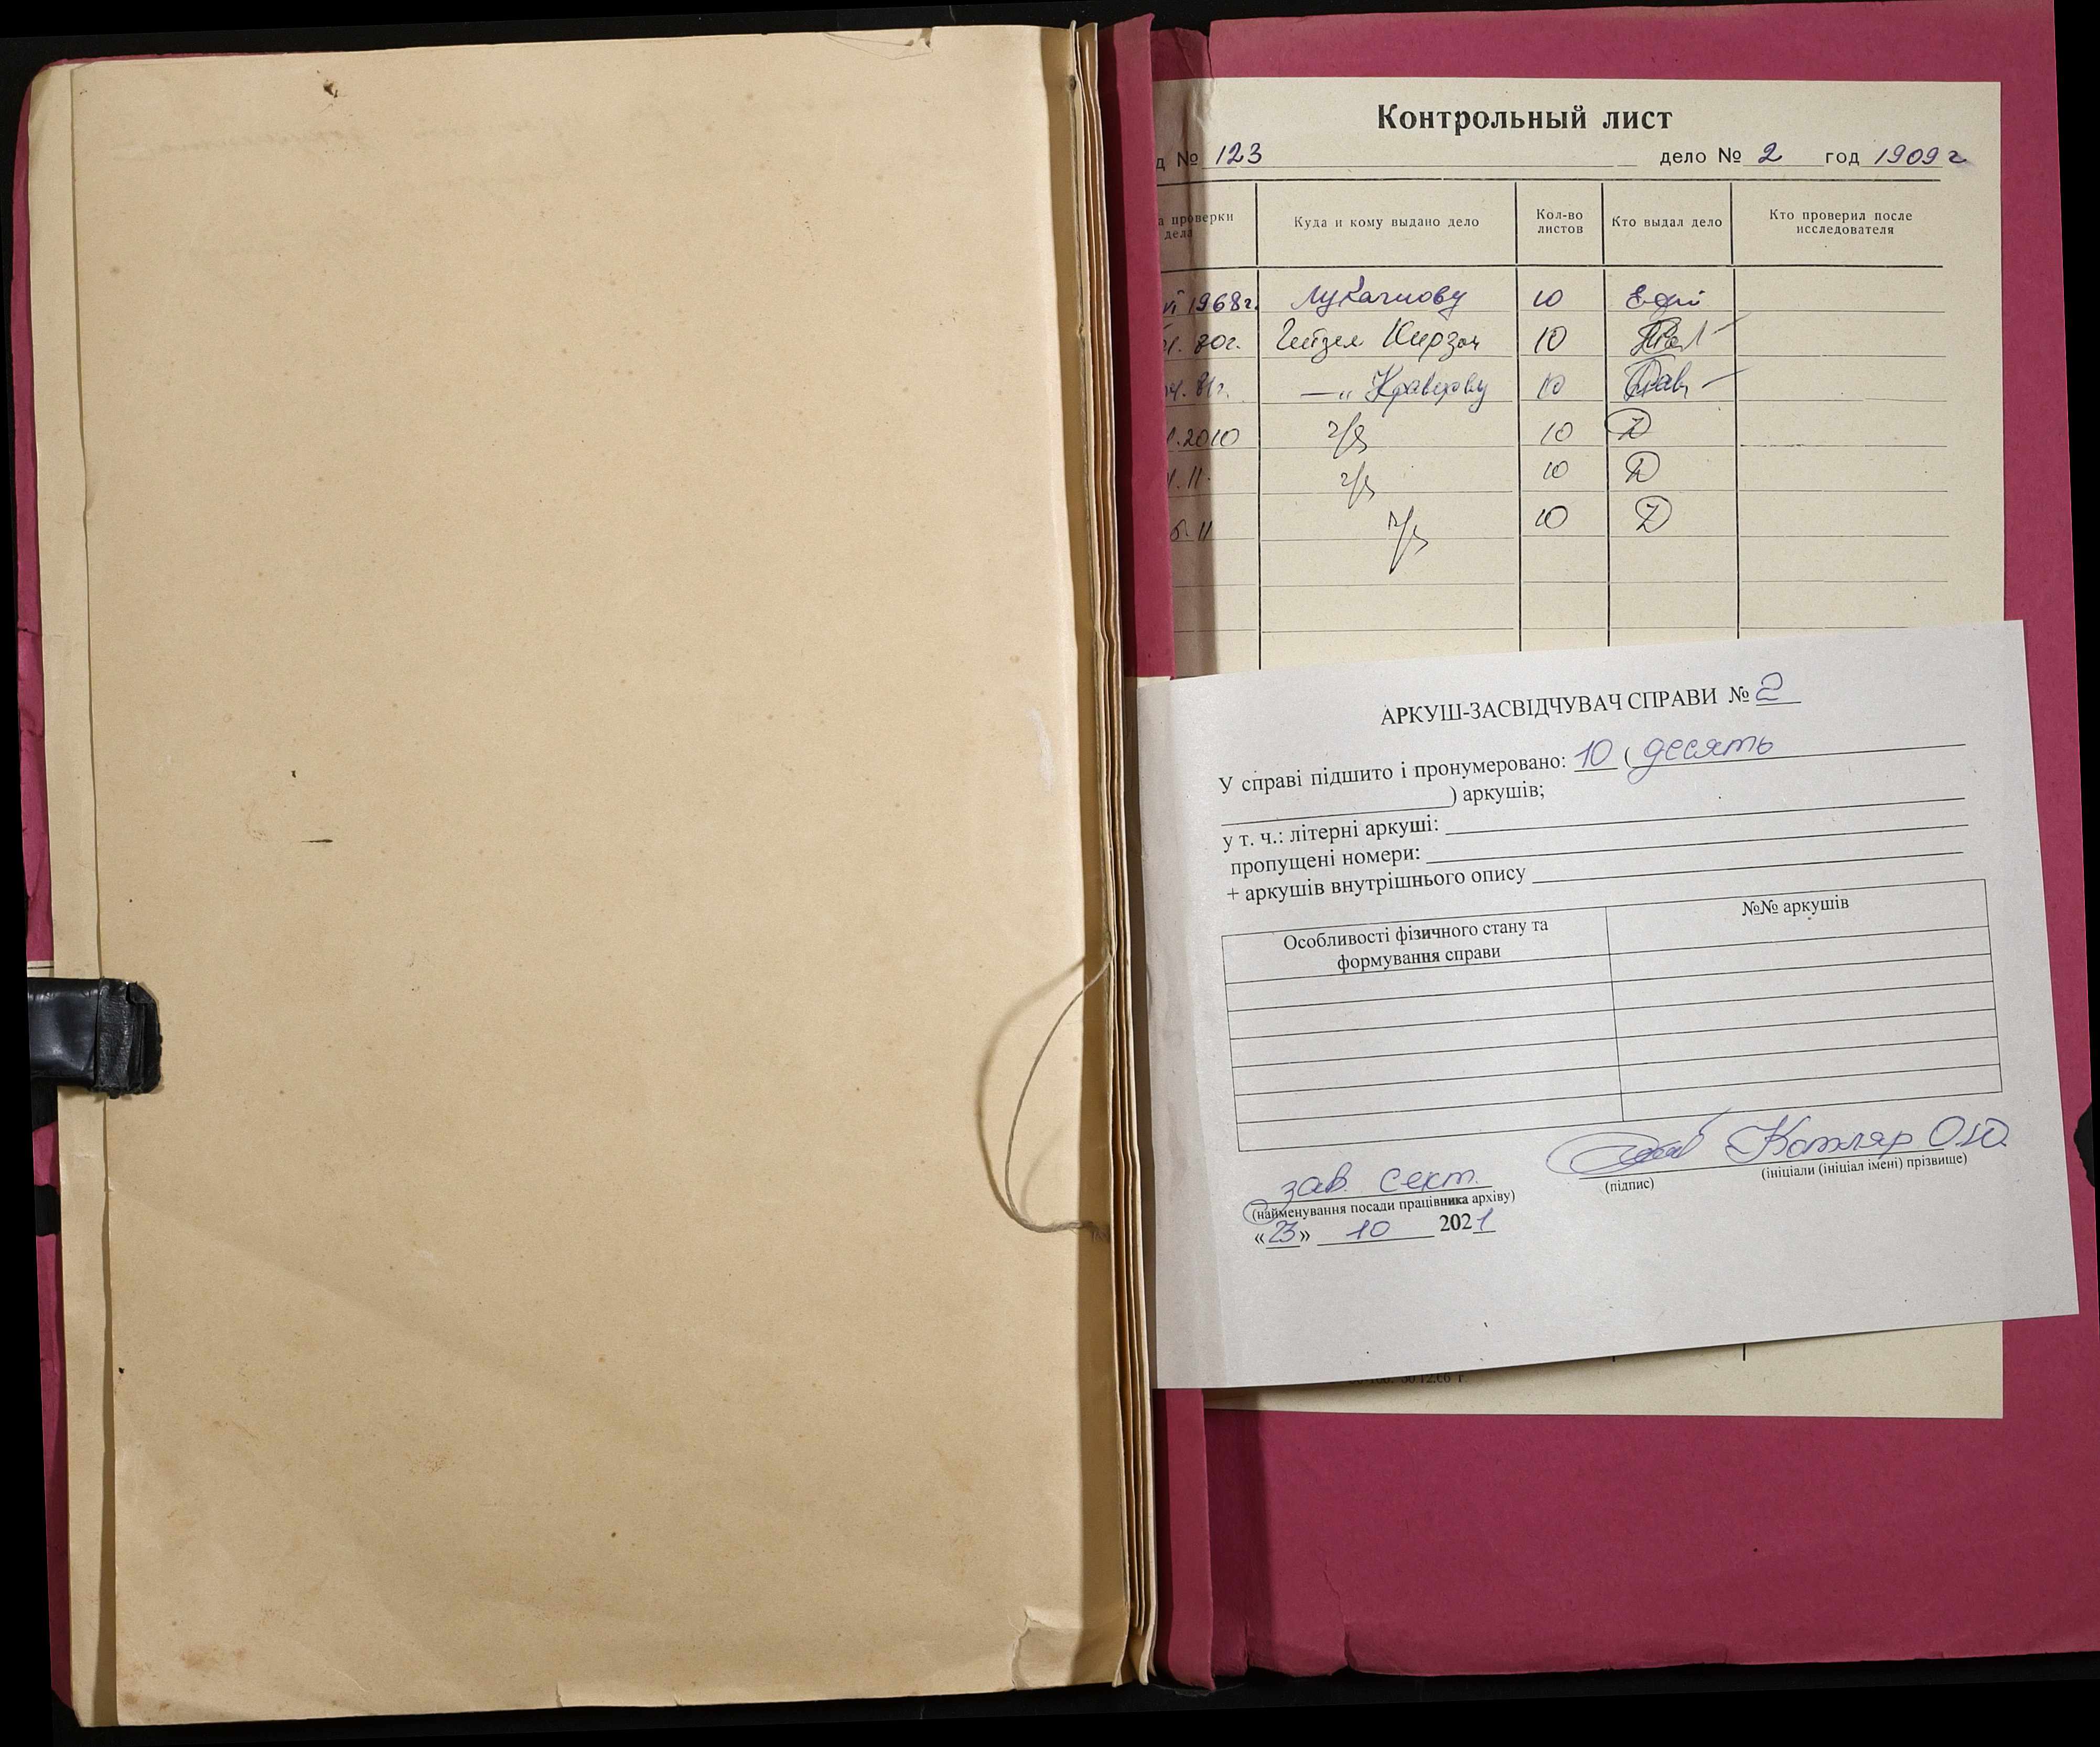 Контрольный лист
д № 123 дело № 2 год 1909 г
а проверки дела Куда и кому выдано дело Кол-во листов Кто выдал дело Кто проверил после исследователя
1968г. Лукачиову 10
80г. 10
81г. —„ 10
.2010 ч/з 10
.11. ч/з 10
.11 ч/з 10
АРКУШ-ЗАСВІДЧУВАЧ СПРАВИ № 2
У справі підшито і пронумеровано: 10 ( десять
) аркушів;
у т. ч.: літерні аркуші:
пропущені номери:
+ аркушів внутрішнього опису
Особливості фізичного стану та формування справи №№ аркушів
зав. сект. Котляр О.Ю.
(найменування посади працівника архіву) (підпис) (ініціали (ініціал імені) прізвище)
«23» 10 2021
30.12.66 г.